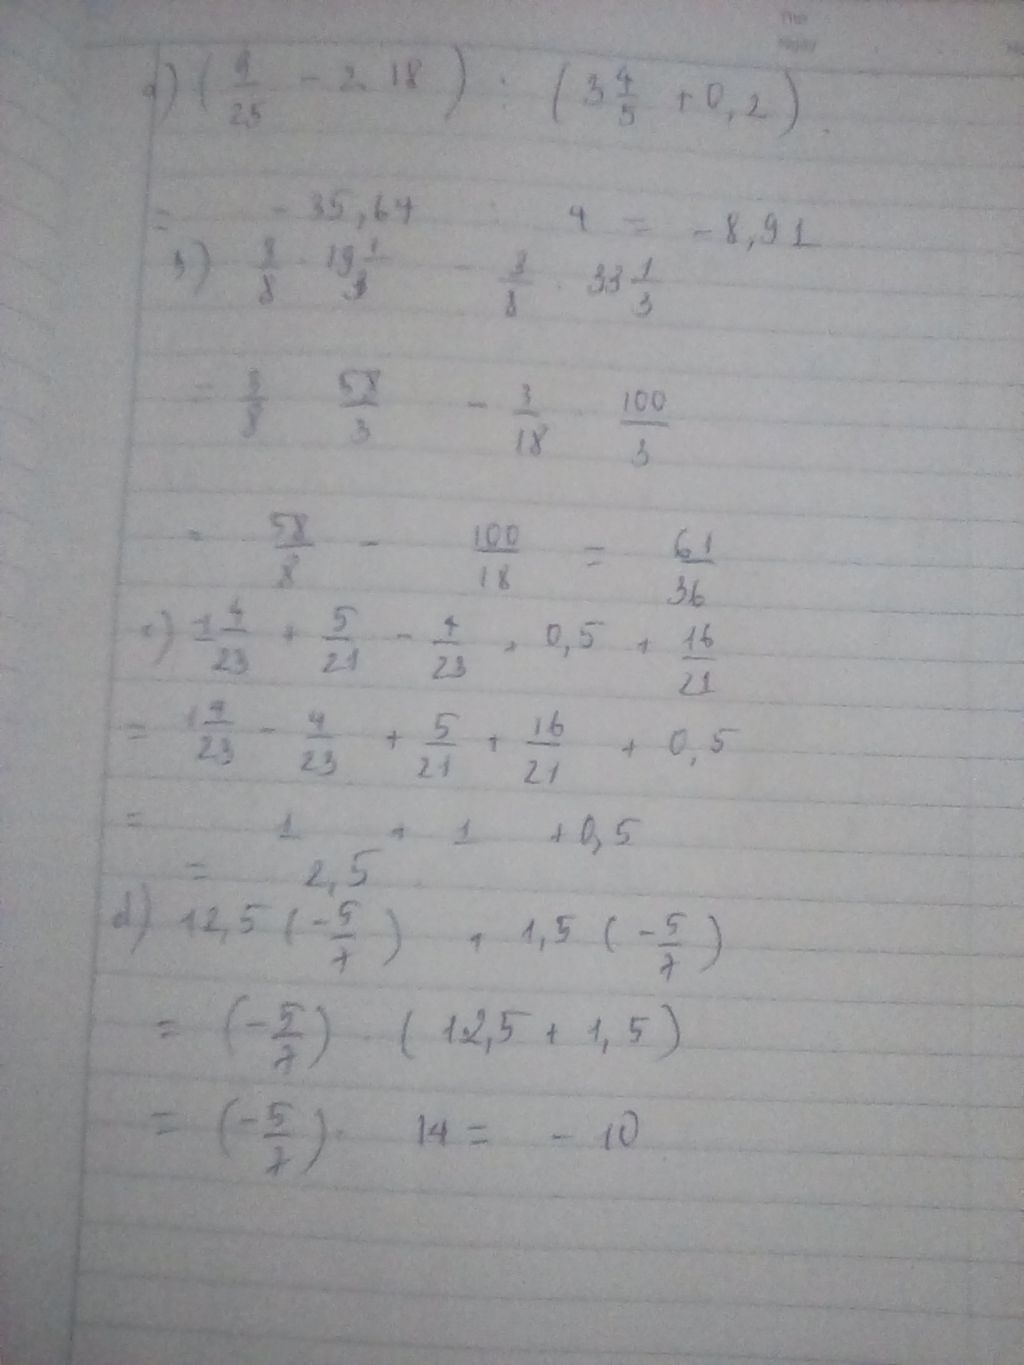 Thứ
Ngày
a) (9/25 - 2.18) : (3 4/5 + 0,2)
= - 35,64 : 4 = - 8,91
b) 3/8 . 19 1/3 - 3/8 . 33 1/3
= 3/8 58/3 - 3/18 . 100/3
= 58/8 - 100/18 = 61/36
c) 1 4/23 + 5/21 - 4/23 + 0,5 + 16/21
= 1 4/23 - 4/23 + 5/21 + 16/21 + 0,5
= 1 + 1 + 0,5
= 2,5
d) 12,5 (- 5/7) + 1,5 (- 5/7)
= (- 5/7) . (12,5 + 1,5)
= (- 5/7) . 14 = - 10